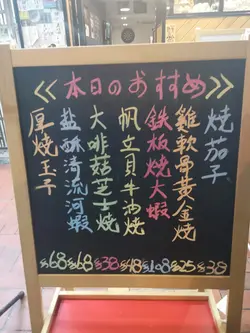 <<本日のおすすめ>>
燒茄子
雞軟骨黃金燒
鉄板燒大蝦
帆立貝牛油燒
大啡菇芝士燒
鹽酥清流河蝦
厚燒玉子
$68 $68 $38 $48 $108 $25 $38